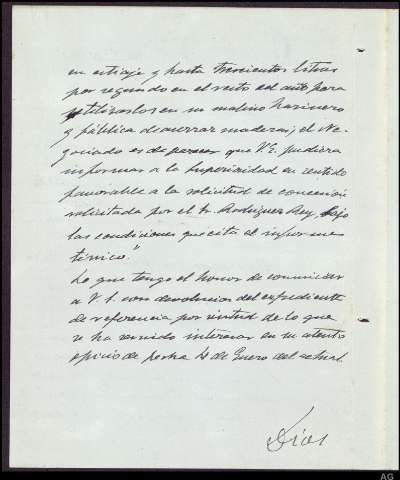 en estiaje y hasta trescientos litros
por segundo en el resto del año para
utilizarlos en su molino harinero
y fábrica de aserrar maderas; el Ne-
gociado es de parecer que V.E. pudiera
informar a la Superioridad en sentido
favorable a la solicitud de concesión
solicitada por el Sr. Rodriguez Rey, bajo
las condiciones que cita el informe
técnico."
Lo que tengo el honor de comunicar
a V.S. con devolución del expediente
de referencia por virtud de lo que
se ha servido interesar en su atento
oficio de fecha 4 de Enero del actual.
Dios
AG